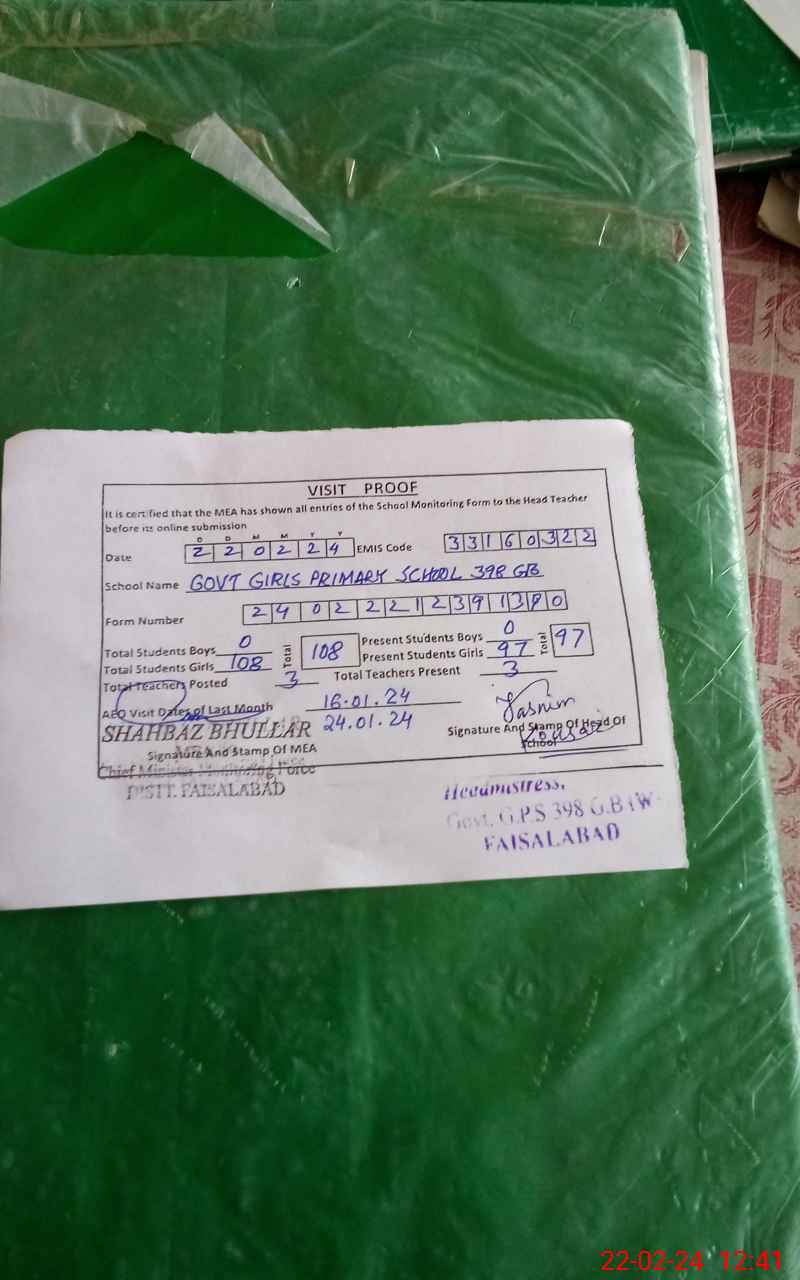 VISIT PROOF
It is certified that the MEA has shown all entries of the School Monitoring Form to the Head Teacher
before its online submission
D D M M Y Y
Date 2 2 0 2 2 4 EMIS Code 3 3 1 6 0 3 2 2
School Name GOVT GIRLS PRIMARY SCHOOL 398 GB
Form Number 24 02 22 12 39 13
Total Students Boys 0 Total 108 Present Students Boys 0 Total 97
Total Students Girls 108 Present Students Girls 97
Total Teachers Posted 3 Total Teachers Present 3
AEO Visit Dates of Last Month 16.01.24
24.01.24
SHAHBAZ BHULLAR
Signature And Stamp Of MEA
Chief Minister Monitoring Force
DISTT. FAISALABAD
Yasmin Kousar
Signature And Stamp Of Head Of
School
Headmistress,
Govt. G.P.S 398 G.B
FAISALABAD
22-02-24 12:41